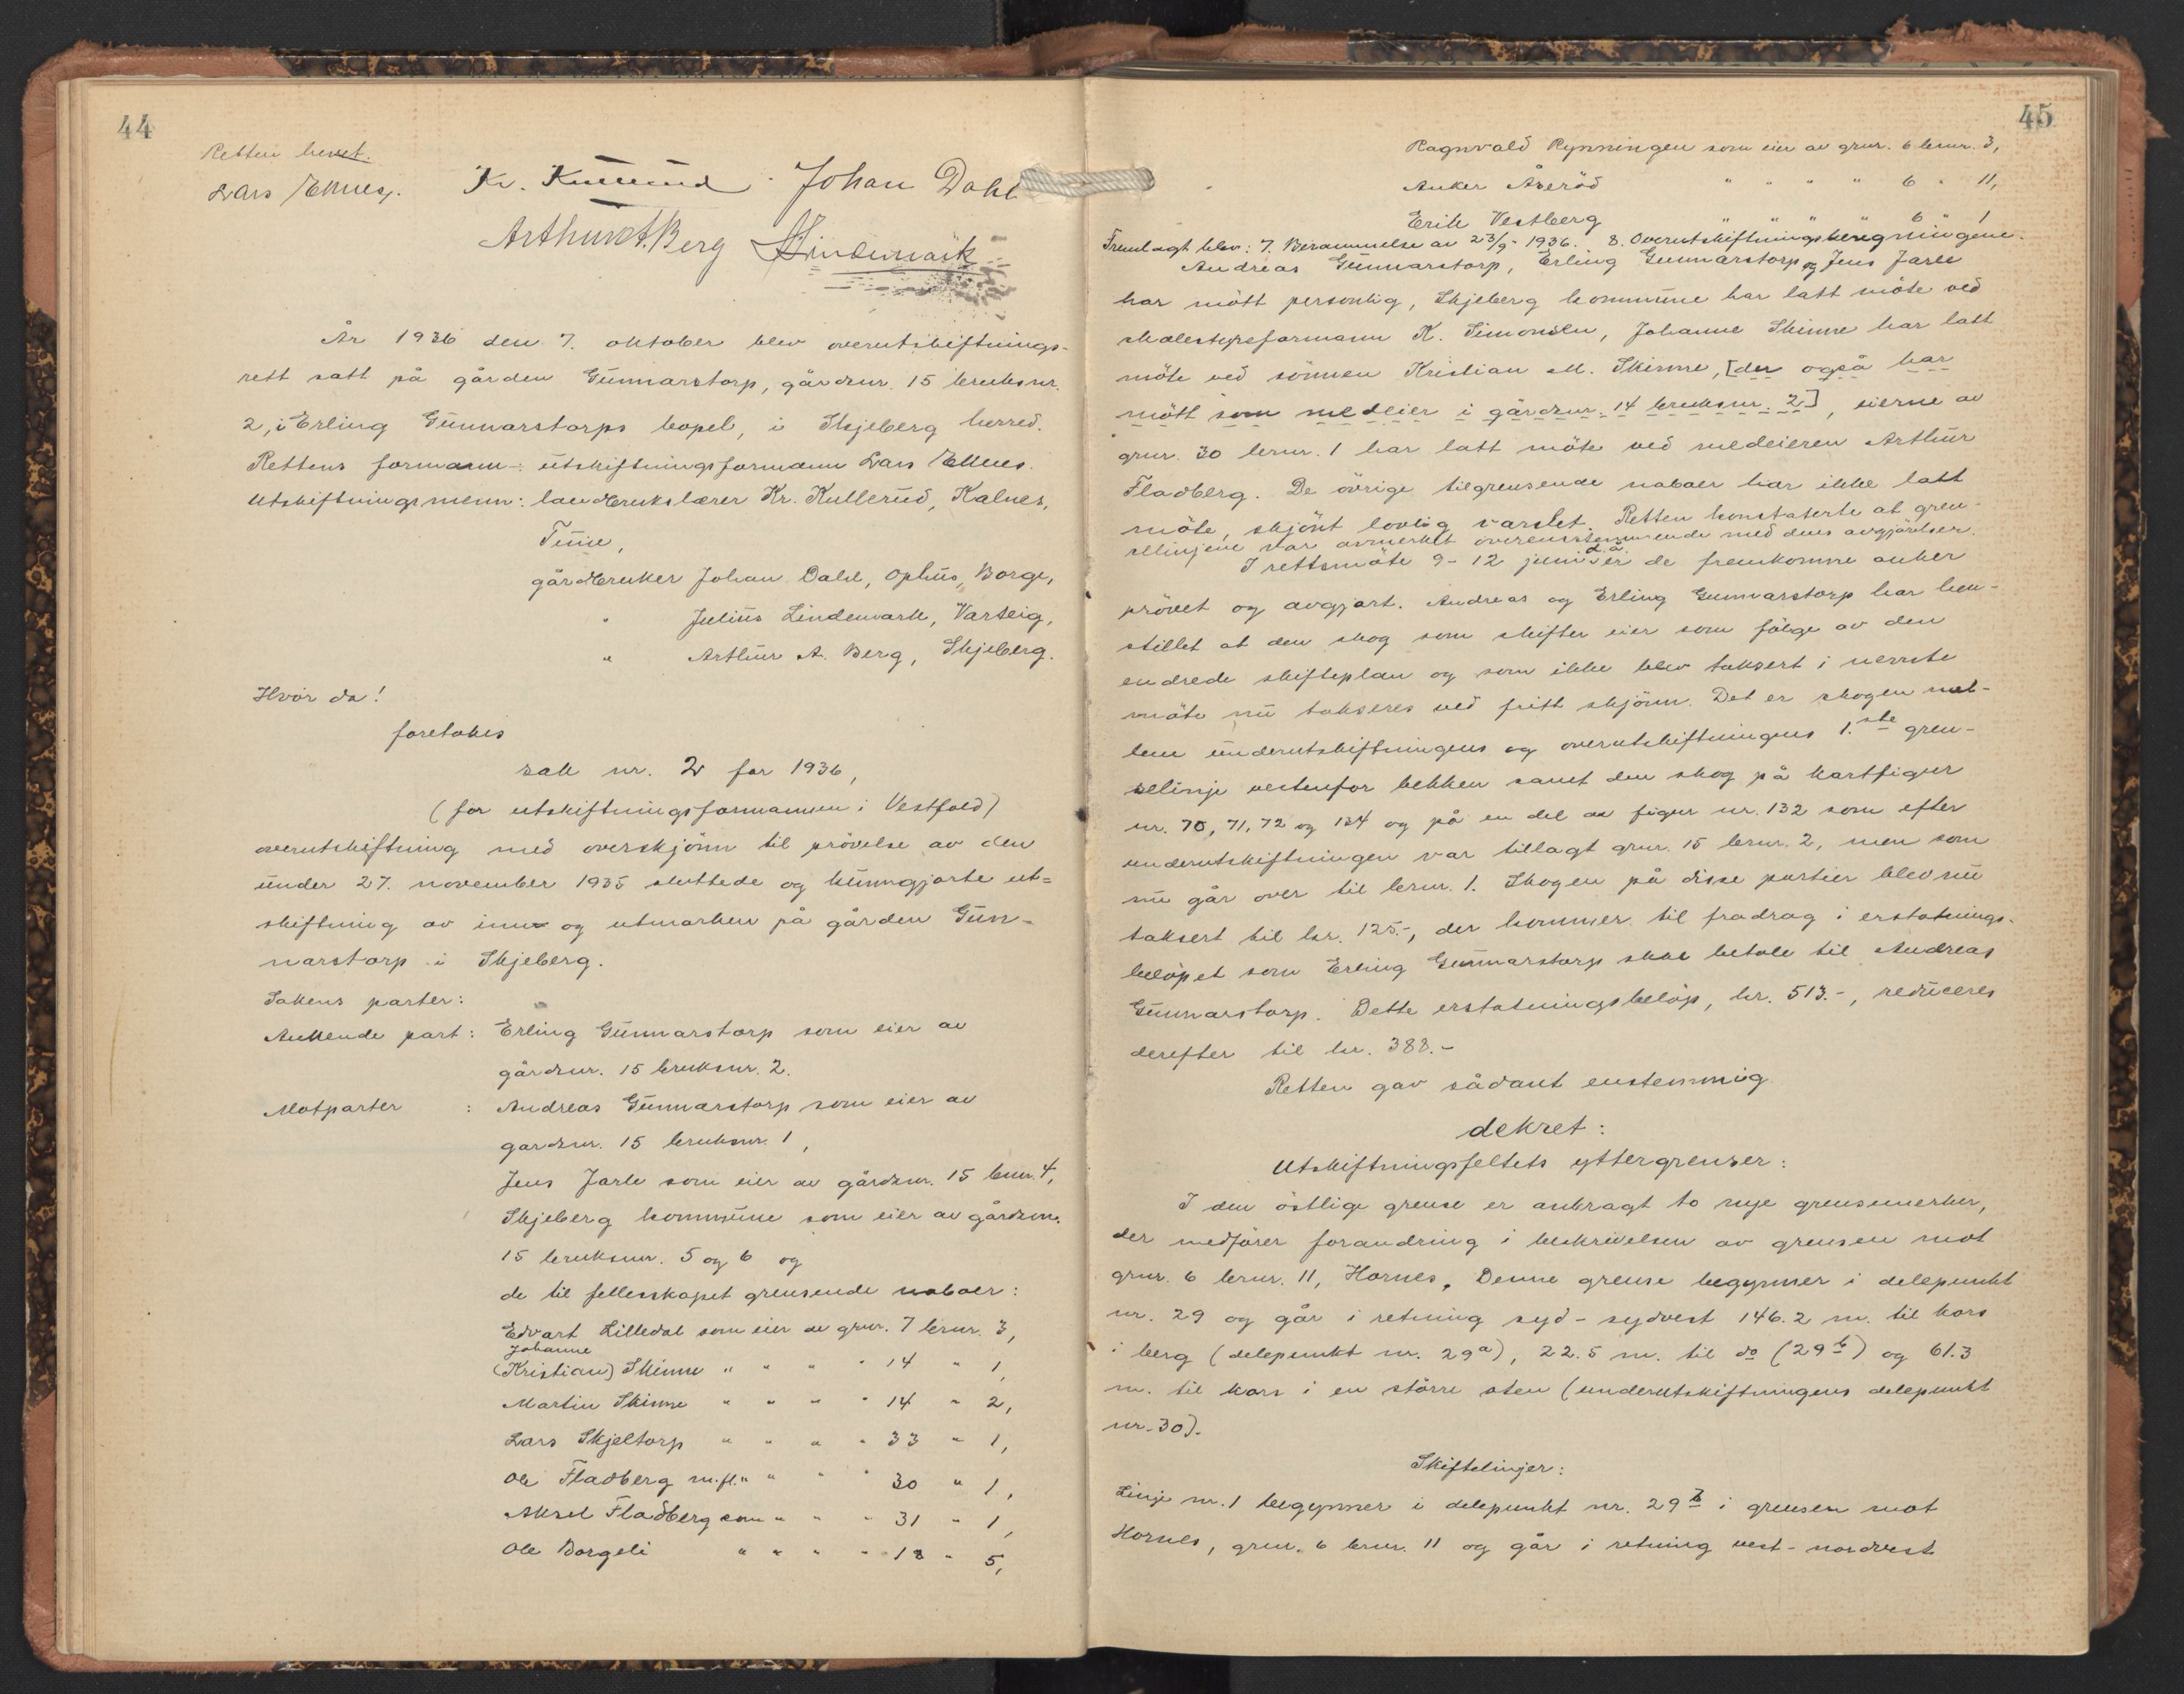 44
Retten hevet.
Lars Ellnes. Kr. Kullerud Johan Dahl
Arthur A. Berg J Lindemark
År 1936 den 7. oktober blev overutskiftnings-
rett satt på gården Gunnarstorp, gårdsnr. 15 bruksnr.
2, i Erling Gunnarstorps bopel, i Skjeberg herred.
Rettens formann: utskiftningsformann Lars Ellnes.
Utskiftningsmenn: landbrukslærer Kr. Kullerud, Kalnes,
Tune,
gårdbruker Johan Dahl, Ophus, Borge,
" Julius Lindemark, Varteig,
" Arthur A. Berg, Skjeberg.
Hvor da!
foretokes
sak nr. 2 for 1936,
(for utskiftningsformannen i Vestfold)
overutskiftning med overskjönn til prövelse av den
under 27. november 1935 sluttede og kunngjorte ut=
skiftning av inn og utmarken på gården Gun-
narstorp i Skjeberg.
Sakens parter:
Ankende part: Erling Gunnarstorp som eier av
gårdsnr. 15 bruksnr. 2.
Motparter : Andreas Gunnarstorp som eier av
gardsnr. 15 bruksnr. 1,
Jens Jarle som eier av gårdsnr. 15 brnr. 4,
Skjeberg kommune som eier av gårdsnr.
15 bruksnr. 5 og 6 og
de til fellesskapet grensende naboer:
Edvart Lilledal som eier av grnr. 7 brnr. 3,
Johanne
(Kristian) Skinne " " " " 14 " 1,
Martin Skinne " " " " 14 " 2,
Lars Skjeltorp " " " " 33 " 1,
Ole Fladberg m.fl. " " " " 30 " 1,
Aksel Fladberg som " " " 31 " 1,
Ole Borgeli " " " " 18 " 5,
45
Ragnvald Rynningen som eier av grnr. 6 brnr. 3,
Anker Åseröd " " " " 6 " 11,
Erik Vestberg " " " " 6 " 1
Fremlagt blev: 7. Berammelse av 23/9 1936. 8. Overutskiftningsberegningene.
Andreas Gunnarstorp, Erling Gunnarstorp og Jens Jarle
har mött personlig, Skjeberg kommune har latt möte ved
skolestyreformann K. Simonsen, Johanne Skinne har latt
möte ved sönnen Kristian M. Skinne, [der også har
mött som medeier i gårdsnr. 14 bruksnr. 2], eierne av
grnr. 30 brnr. 1 har latt möte ved medeieren Arthur
Fladberg. De övrige tilgrensende naboer har ikke latt
möte, skjönt lovlig varslet. Retten konstaterte at gren-
selinjene var avmerket overensstemmende med dens avgjörelser.
d.å.
I rettsmöte 9-12 juni er de fremkomne anker
prövet og avgjort. Andreas og Erling Gunnarstorp har hen-
stillet at den skog som skifter eier som fölge av den
endrede skifteplan og som ikke blev taksert i nevnte
möte nu takseres ved fritt skjönn. Det er skogen mel-
lem underutskiftningens og overutskiftningens 1.ste gren-
selinje vestenfor bekken samt den skog på kartfigur
nr. 70, 71, 72 og 134 og på en del av figur nr. 132 som efter
underutskiftningen var tillagt grnr. 15 brnr. 2, men som
nu går over til brnr. 1. Skogen på disse partier blev nu
taksert til kr. 125.-, der kommer til fradrag i erstatnings-
belöpet som Erling Gunnarstorp skal betale til Andreas
Gunnarstorp. Dette erstatningsbelöp, kr. 513.-, reduceres
derefter til kr. 388.-
Retten gav sådant enstemmig
dekret:
Utskiftningsfeltets yttergrenser:
I den östlige grense er anbragt to nye grensemerker,
der medförer forandring i beskrivelsen av grensen mot
grnr. 6 brnr. 11, Hornes. Denne grense begynner i delepunkt
nr. 29 og går i retning syd-sydvest 146.2 m. til kors
i berg (delepunkt nr. 29a), 22.5 m. til do (29b) og 61.3
m. til kors i en större sten (underutskiftningens delepunkt
nr. 30).
Skiftelinjer:
Linje nr. 1 begynner i delepunkt nr. 29b i grensen mot
Hornes, grnr. 6 brnr. 11 og går i retning vest-nordvest